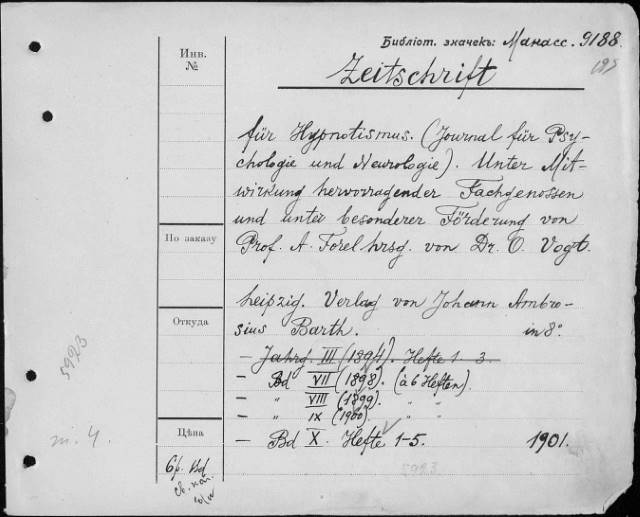 Библіот. значекъ: Манасс. 9188.
195
Инв.
№
Zeitschrift
für Hypnotismus. (Journal für Psy-
chologie und Neurologie). Unter Mit-
wirkung hervorragender Fachgenossen
und unter besonderer Förderung von
Prof. A. Forel hrsg. von Dr. O. Vogt.
По заказу
Leipzig. Verlag von Johann Ambro-
sius Barth. in 8°.
Откуда
— Jahrg. III (1894). Hefte 1–3.
— Bd VII (1898). (à 6 Heften).
— " VIII (1899). " "
— " IX (1900) " "
— Bd X. Hefte 1–5. 1901.
Цѣна
5923
5923
т. 4.